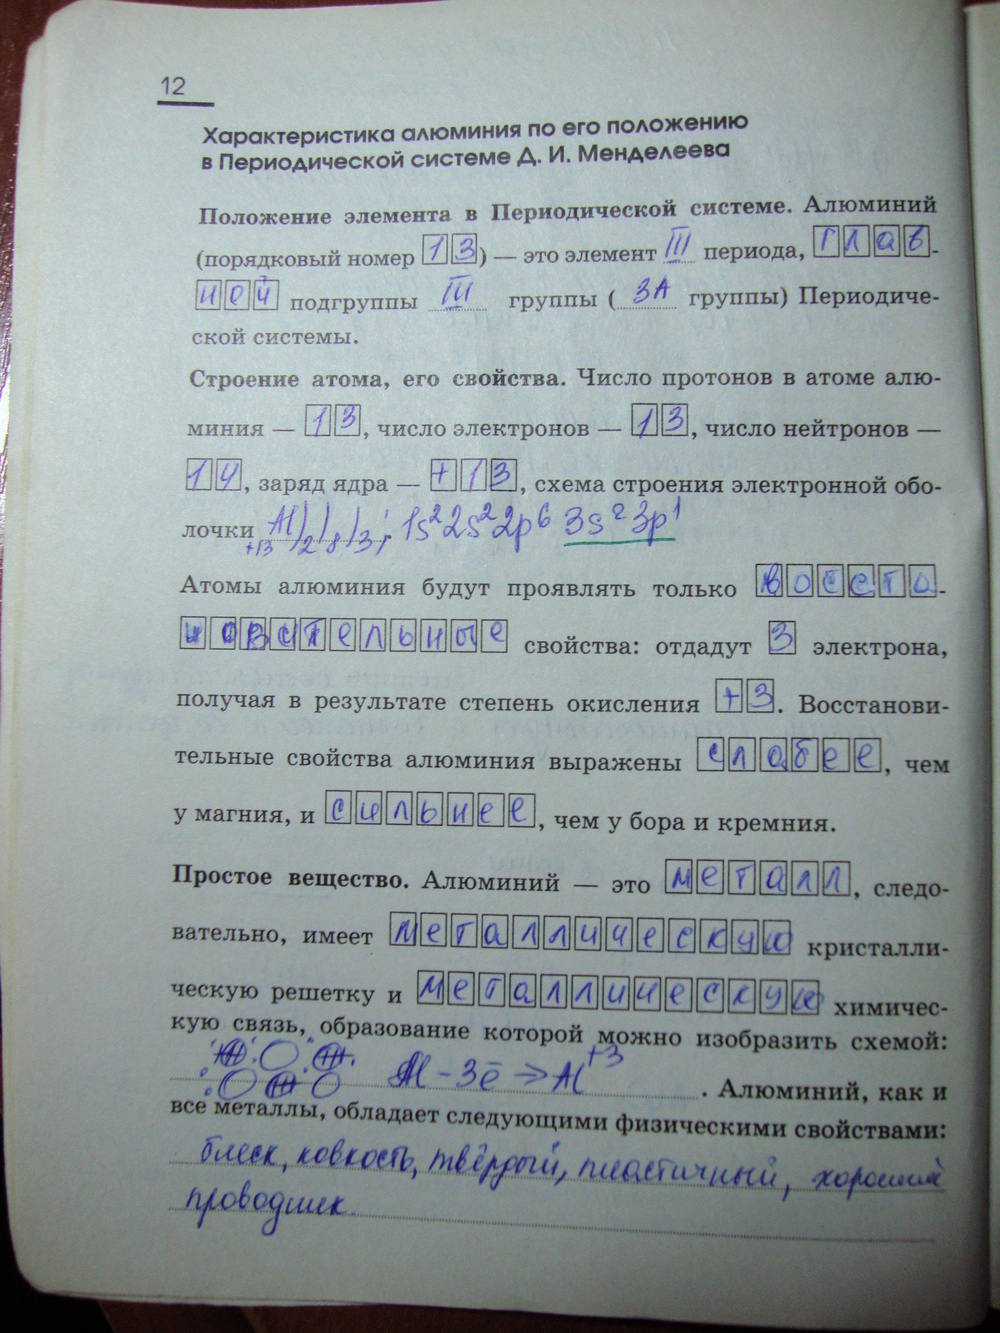 12
Характеристика алюминия по его положению
в Периодической системе Д. И. Менделеева
Положение элемента в Периодической системе. Алюминий
(порядковый номер 13) — это элемент III периода, глав-
ной подгруппы III группы (3А группы) Периодиче-
ской системы.
Строение атома, его свойства. Число протонов в атоме алю-
миния — 13, число электронов — 13, число нейтронов —
14, заряд ядра — +13, схема строения электронной обо-
лочки Al +13 )2 )8 )3; 1s² 2s² 2p⁶ 3s² 3p¹
Атомы алюминия будут проявлять только восста-
новительные свойства: отдадут 3 электрона,
получая в результате степень окисления +3. Восстанови-
тельные свойства алюминия выражены слабее, чем
у магния, и сильнее, чем у бора и кремния.
Простое вещество. Алюминий — это металл, следо-
вательно, имеет металлическую кристалли-
ческую решетку и металлическую химичес-
кую связь, образование которой можно изобразить схемой:
Al – 3ē → Al⁺³. Алюминий, как и
все металлы, обладает следующими физическими свойствами:
блеск, ковкость, твёрдый, пластичный, хороший
проводник.